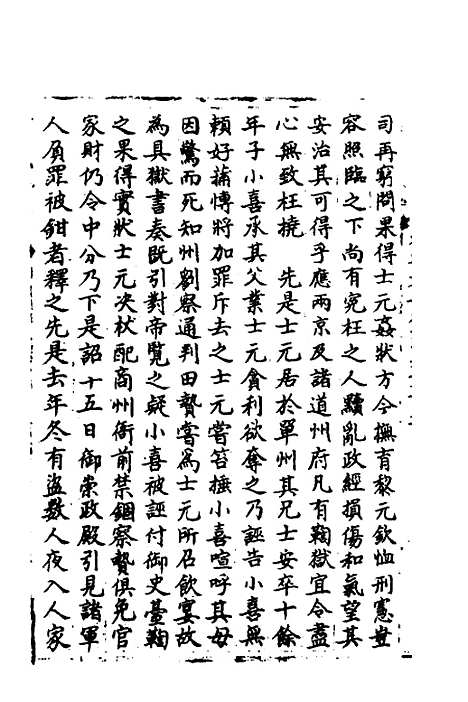 司再窮問果得士元姦狀方今撫育黎元欽恤刑憲豈
容照臨之下尚有寃枉之人黷亂政經損傷和氣望其
安治其可得乎應兩京及諸道州府凡有鞫獄宜令盡
心無致枉撓　先是士元居於單州其兄士安卒十餘
年子小喜承其父業士元貪利欲奪之乃誣告小喜無
賴好蒱愽將加罪斥去之士元嘗笞捶小喜喧呼其母
因驚而死知州劉察通判田贄嘗為士元所召飲宴故
為具獄書奏既引對帝覽之疑小喜被誣付御史臺鞫
之果得實狀士元决杖配商州衙前禁錮察贄俱免官
家財仍令中分乃下是詔十五日御崇政殿引見諸軍
人屓罪被鉗者釋之先是去年冬有盜數人夜入人家